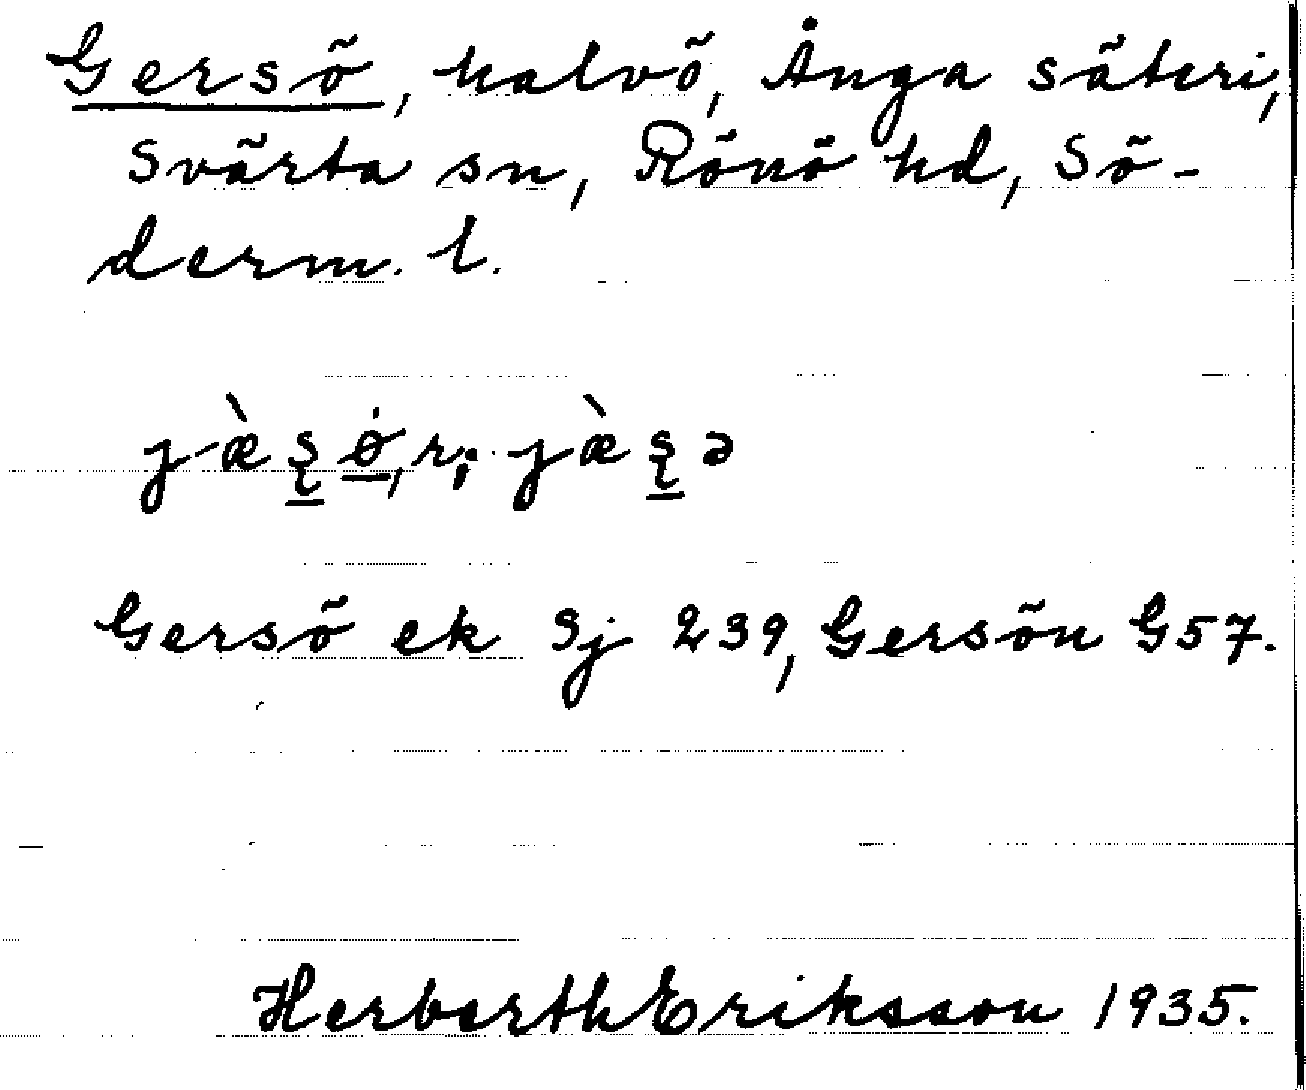 Gersö, halvö, Ånga säteri,
Svärta sn, Rönö hd, Sö-
derm. l.
jæ̀ʂø̇, r; jæ̀ʂə
Gersö ek Sj 239, Gersön G57.
Herberth Eriksson 1935.